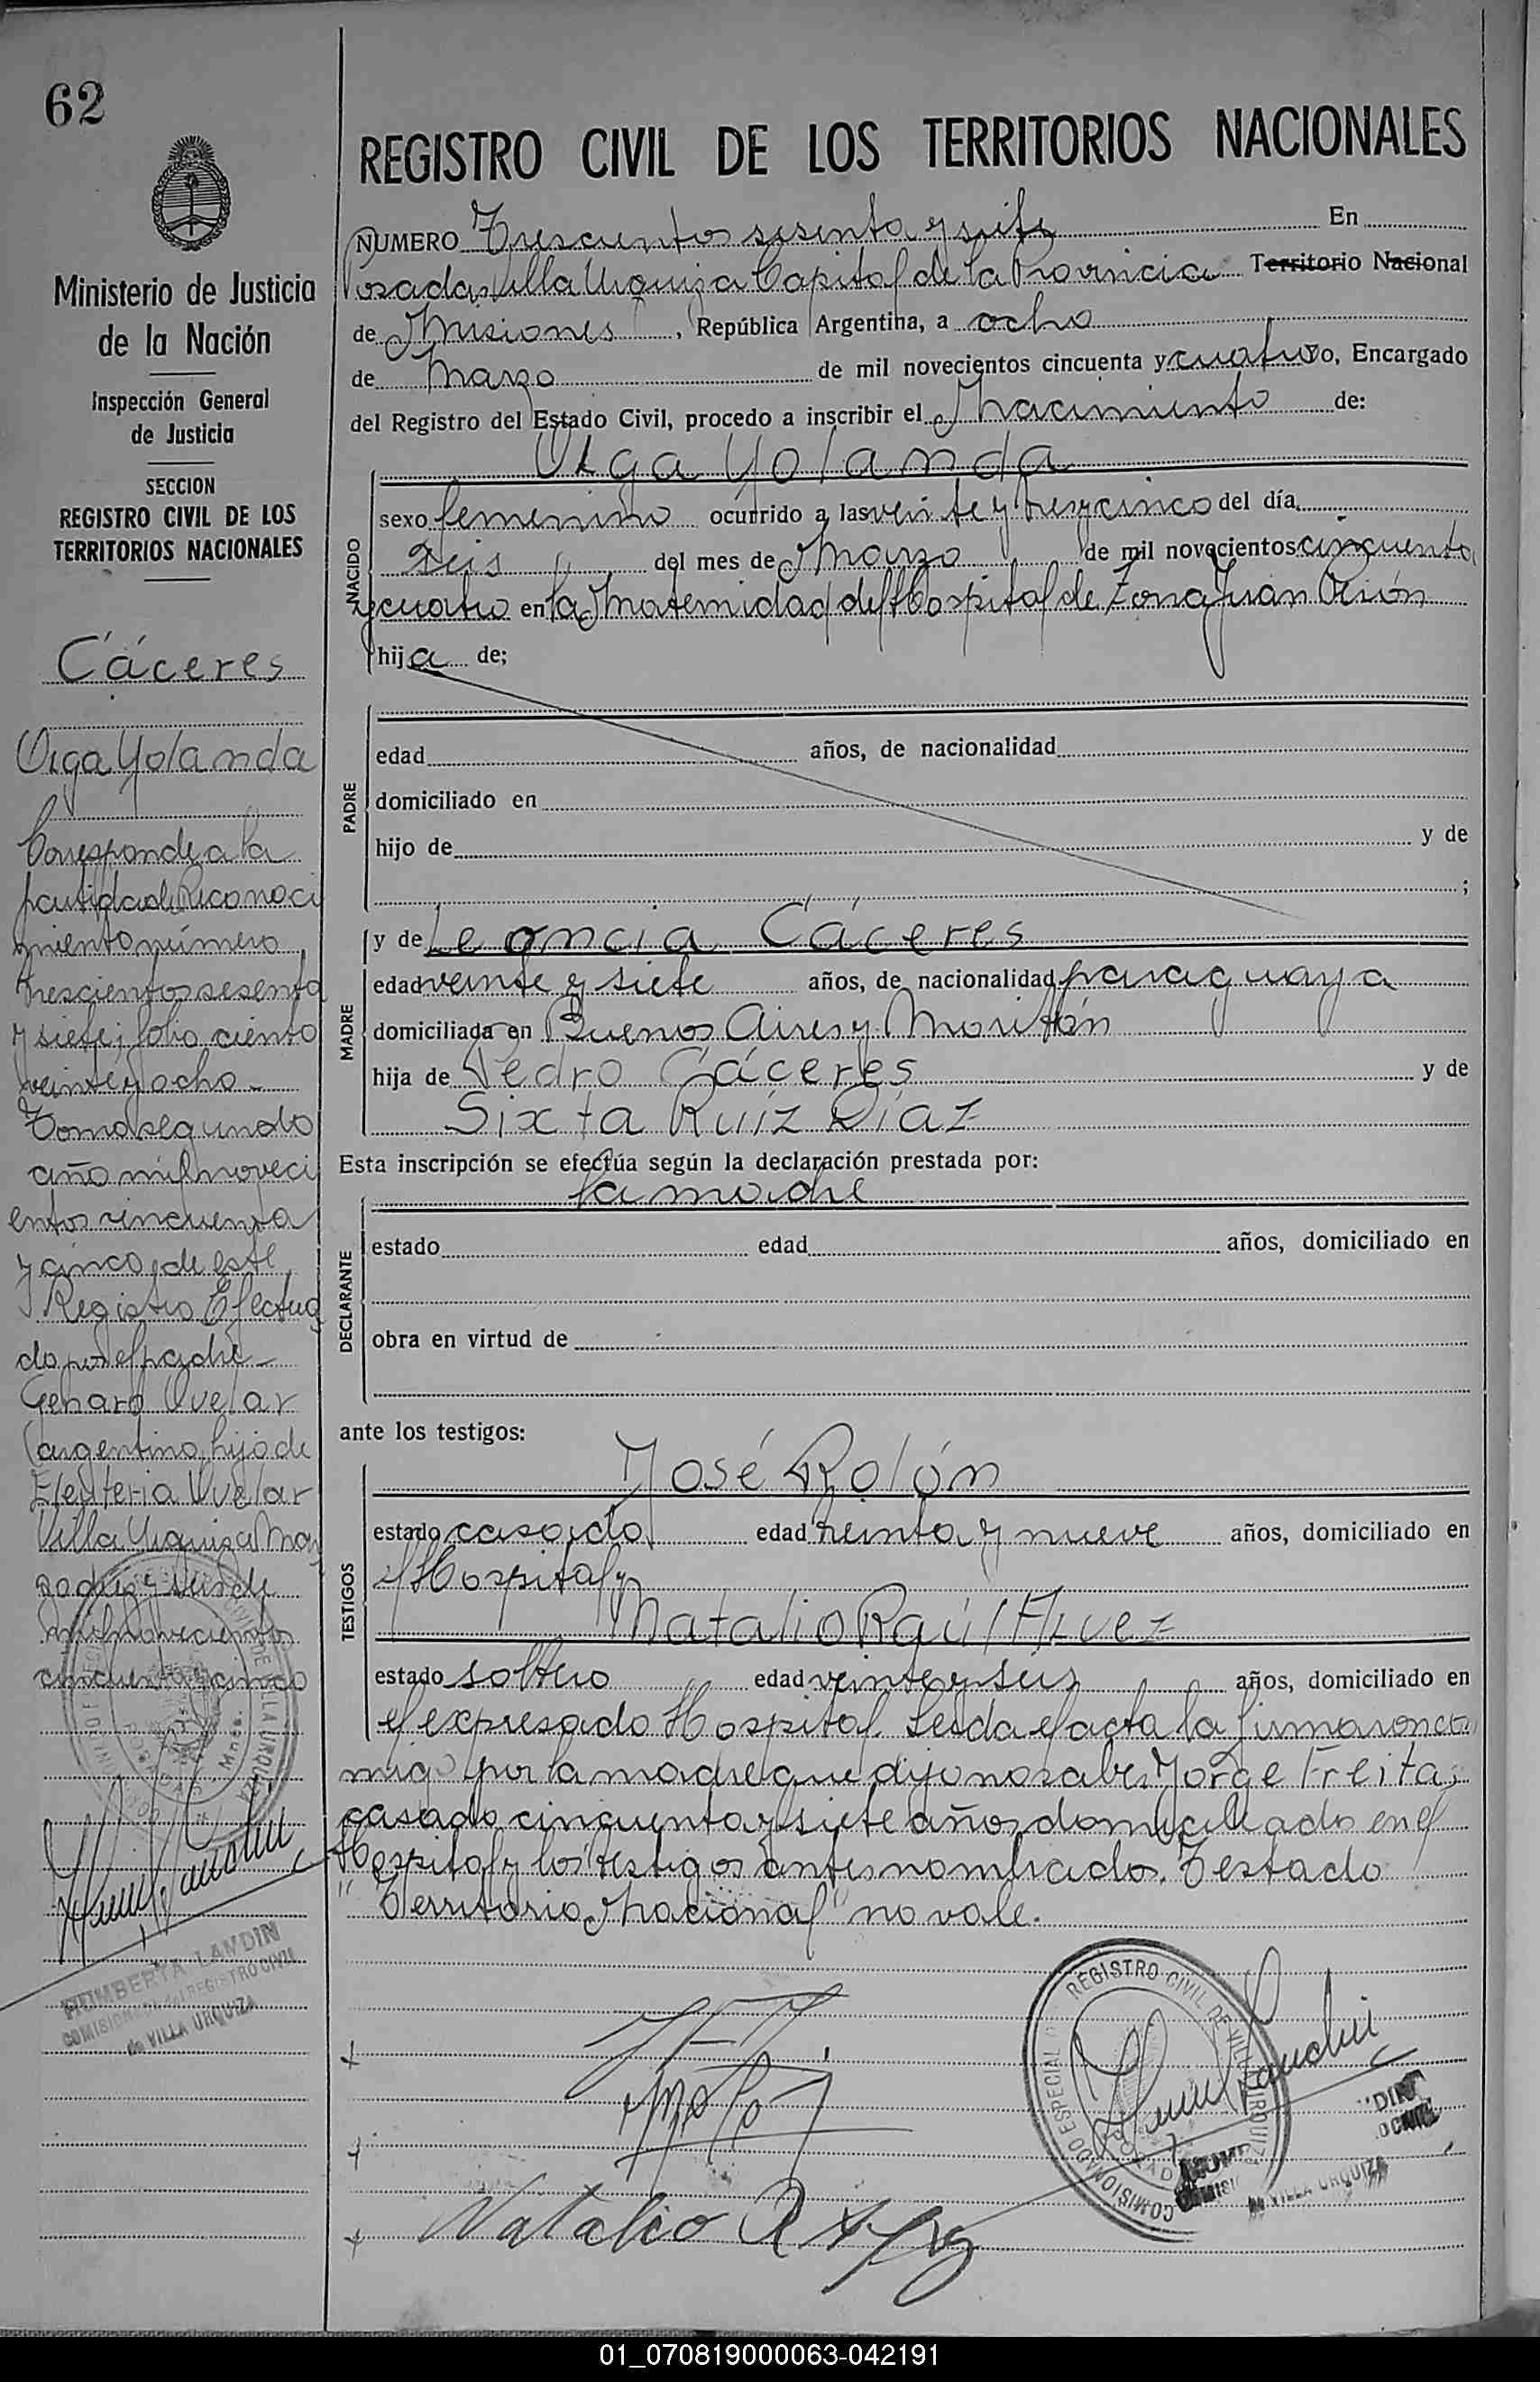 62
Ministerio de Justicia
de la Nación
Inspección General
de Justicia
SECCION
REGISTRO CIVIL DE LOS
TERRITORIOS NACIONALES
Cáceres
Olga Yolanda
Corresponde a la
partida de Reconoci
miento número
trescientos sesenta
y siete; folio ciento
veinte y ocho -
Tomo segundo
año mil noveci
entos cincuenta
y cinco, de este
Registro Efectua
do por el padre -
Genaro Ovelar
argentino, hijo de
Eleuteria Ovelar
Villa Urquiza Mar
zo diez y seis de
mil novecientos
cincuenta y cinco
HUMBERTA LANDIN
COMISIONADA del REGISTRO CIVIL
de VILLA URQUIZA
REGISTRO CIVIL DE LOS TERRITORIOS NACIONALES
NUMERO Trescientos sesenta y siete En
Posadas Villa Urquiza Capital de la Provincia Territorio Nacional
de Misiones, República Argentina, a ocho
de Marzo de mil novecientos cincuenta y cuatro yo, Encargado
del Registro del Estado Civil, procedo a inscribir el Nacimiento de:
Olga Yolanda
NACIDO
sexo femenino ocurrido a las veinte y tres y cinco del día
seis del mes de Marzo de mil novecientos cincuenta
y cuatro en la Maternidad del Hospital de Zona Juan Perón
hija de;
PADRE
edad años, de nacionalidad
domiciliado en
hijo de y de
;
MADRE
y de Leoncia Cáceres
edad veinte y siete años, de nacionalidad paraguaya
domiciliada en Buenos Aires y Moritán
hija de Pedro Cáceres y de
Sixta Ruíz Díaz
Esta inscripción se efectúa según la declaración prestada por:
la madre
DECLARANTE
estado edad años, domiciliado en
obra en virtud de
ante los testigos:
TESTIGOS
José Rolón
estado casado edad treinta y nueve años, domiciliado en
el Hospital y
Natalio Raúl Alvez
estado soltero edad veinte y seis años, domiciliado en
el expresado Hospital Leida el acta la firmaron co
migo por la madre que dijo no saber Jorge Freita,
casado cincuenta y siete años domiciliado en el
Hospital y los testigos antes nombrados. Testado
"Territorio Nacional" no vale.
REGISTRO CIVIL DE VILLA URQUIZA
COMISIONADO ESPECIAL
POSADAS
VILLA URQUIZA
Natalio R
01_070819000063-042191